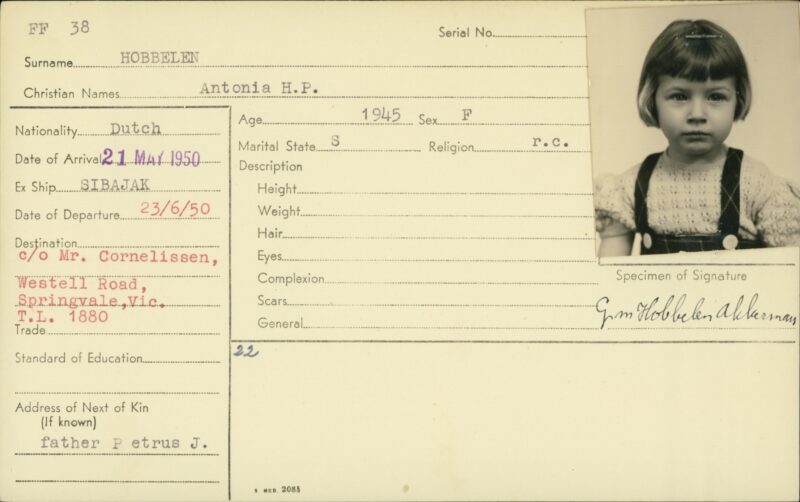 FF 38
Serial No.
Surname HOBBELEN
Christian Names Antonia H.P.
Nationality Dutch
Date of Arrival 21 MAY 1950
Ex Ship SIBAJAK
Date of Departure 23/6/50
Destination
c/o Mr. Cornelissen,
Westell Road,
Springvale,Vic.
T.L. 1880
Trade
Standard of Education
Address of Next of Kin
(If known)
father P etrus J.
Age 1945 Sex F
Marital State S Religion r.c.
Description
Height
Weight
Hair
Eyes
Complexion
Scars
General
22
Specimen of Signature
Hobbelen Akkerman
2085